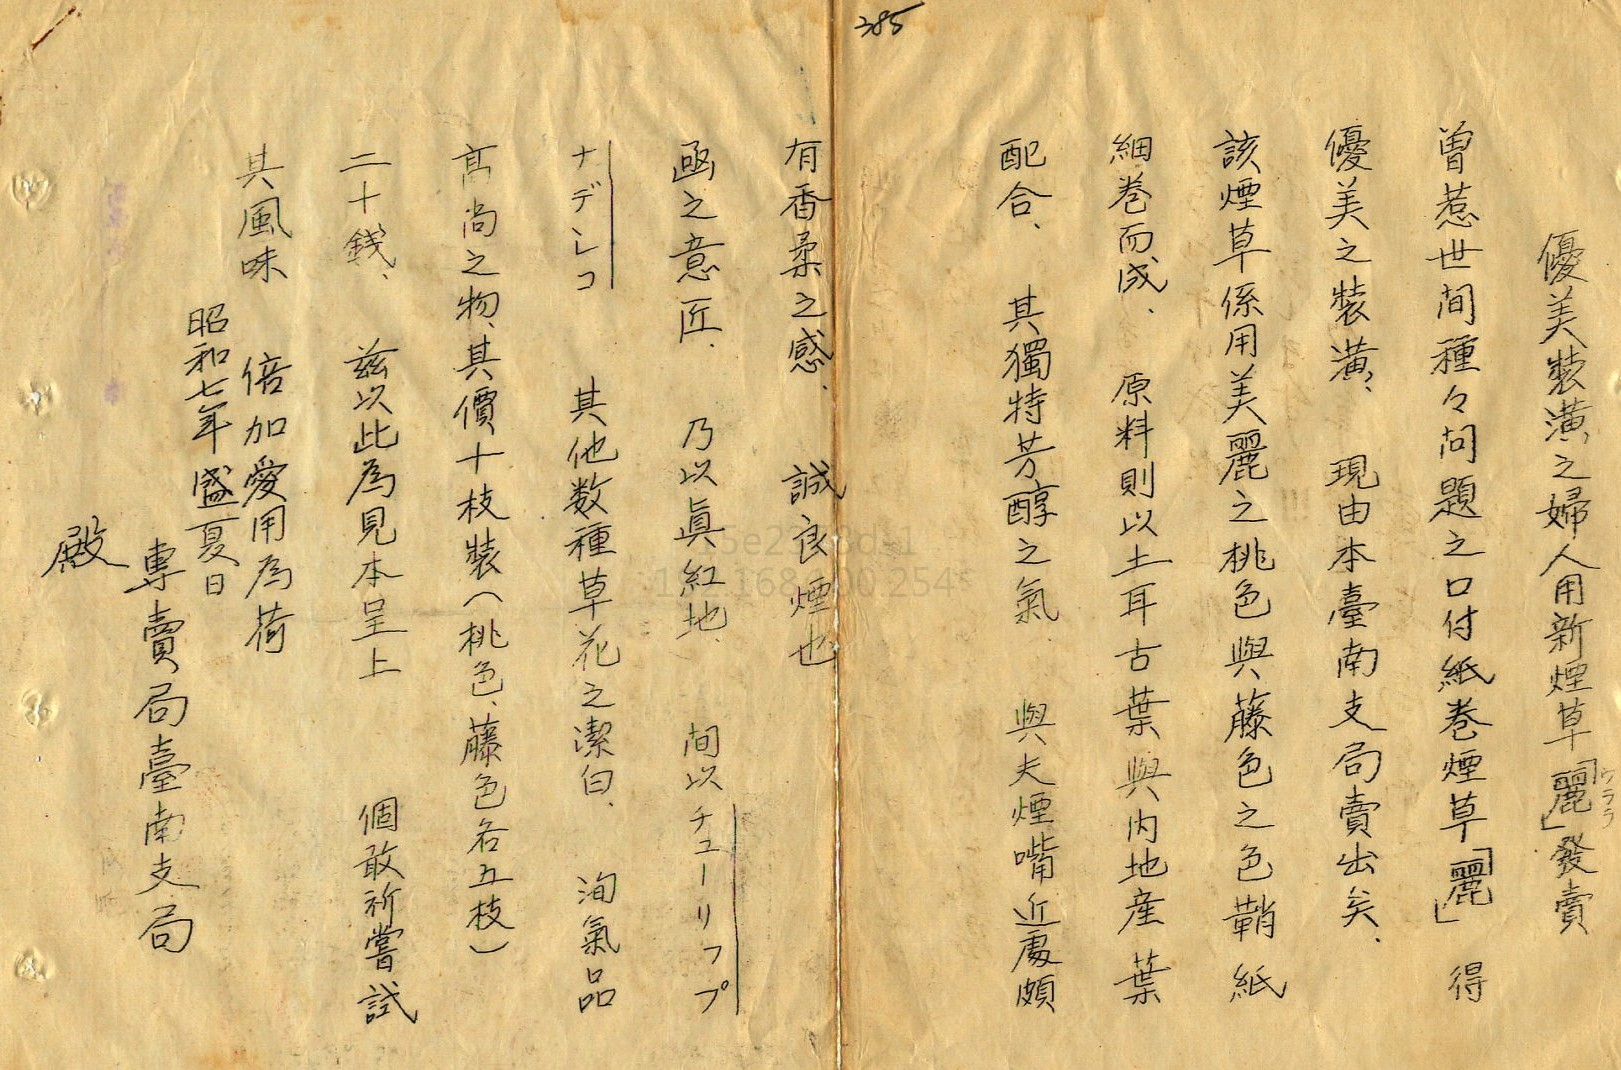 385
優美裝潢之婦人用新煙草「麗」發賣
ウララ
曾惹世間種々问題之口付紙卷煙草「麗」 得
優美之裝潢、 現由本臺南支局賣出矣、
該煙草係用美麗之桃色與藤色之色鞘紙
細卷而成、 原料則以土耳古葉與內地産葉
配合、 其獨特芳醇之氣、 與夫煙嘴近處頗
有香柔之感、 誠良煙也
凾之意匠、 乃以眞紅地、 间以チューリップ
ナデシコ 其他数種草花之潔白、 洵氣品
髙尚之物、其價十枝裝（桃色、藤色各五枝）
二十錢、 茲以此為見本呈上 個敢祈嘗試
其風味 倍加愛用為荷
昭和七年盛夏日
專賣局臺南支局
殿
192.168.100.254